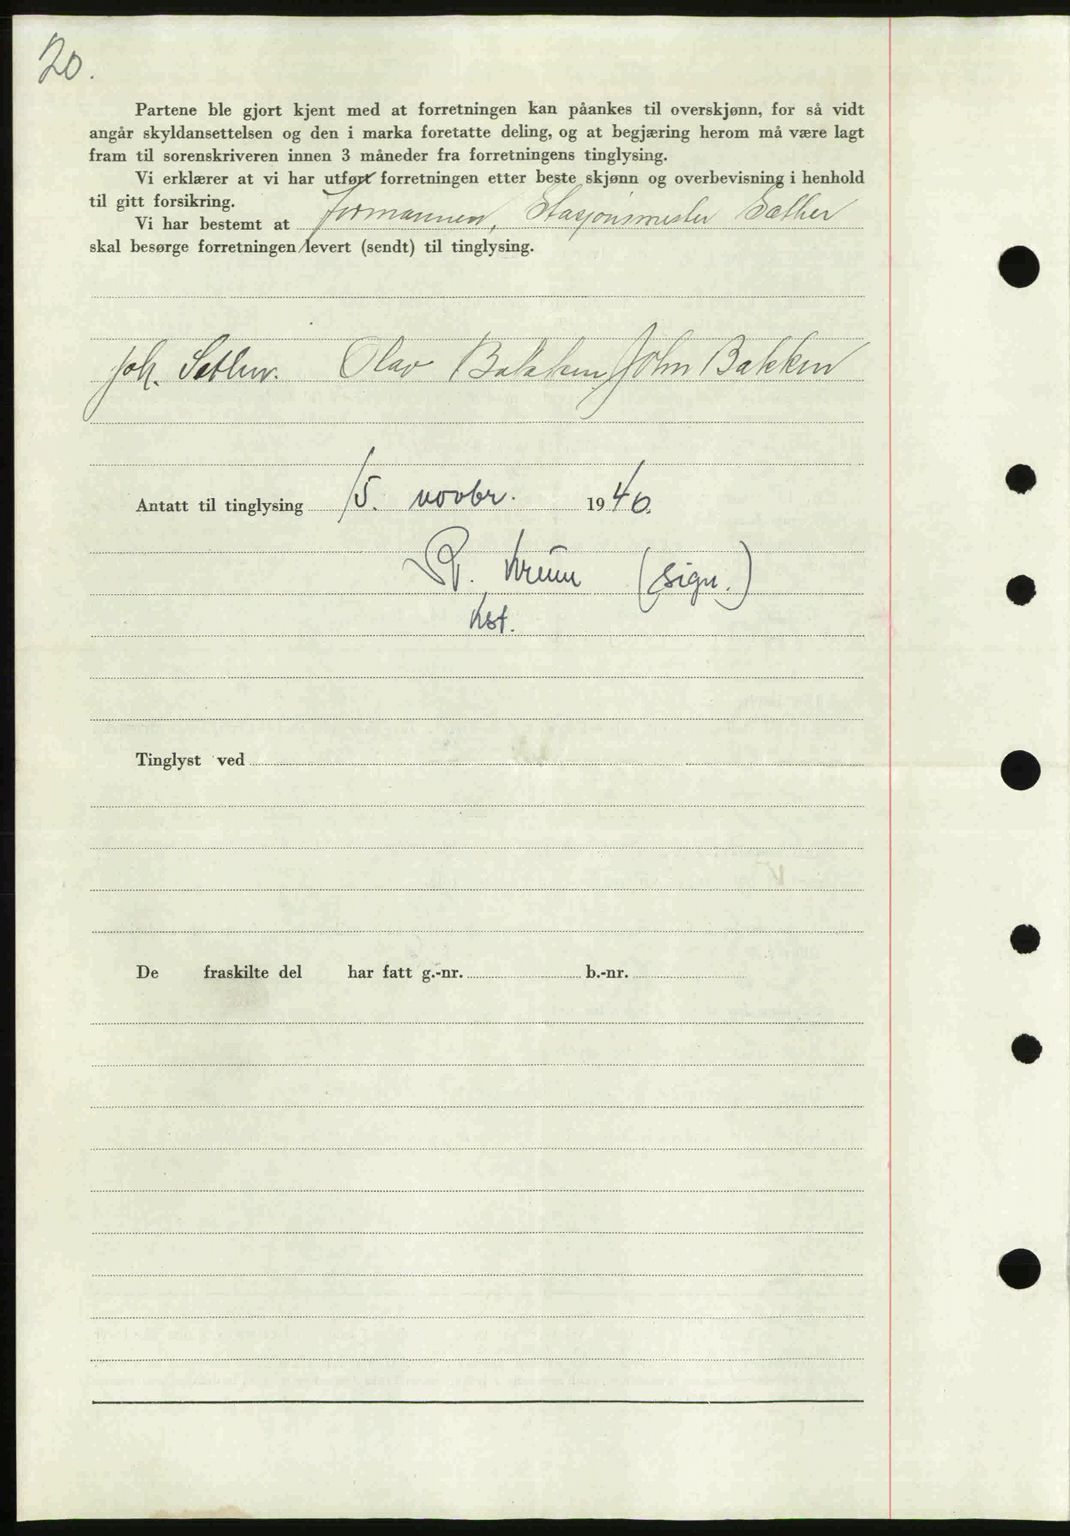 20.
Partene ble gjort kjent med at forretningen kan påankes til overskjønn, for så vidt
angår skyldansettelsen og den i marka foretatte deling, og at begjæring herom må være lagt
fram til sorenskriveren innen 3 måneder fra forretningens tinglysing.
Vi erklærer at vi har utført forretningen etter beste skjønn og overbevisning i henhold
til gitt forsikring.
Vi har bestemt at formannen, Stasjonsmester Sæther
skal besørge forretningen levert (sendt) til tinglysing.
Joh. Sæther. Olav Bakken John Bakken
Antatt til tinglysing 15. novbr. 1940.
(sign.)
kst.
Tinglyst ved
De fraskilte del har fatt g.-nr. b.-nr.